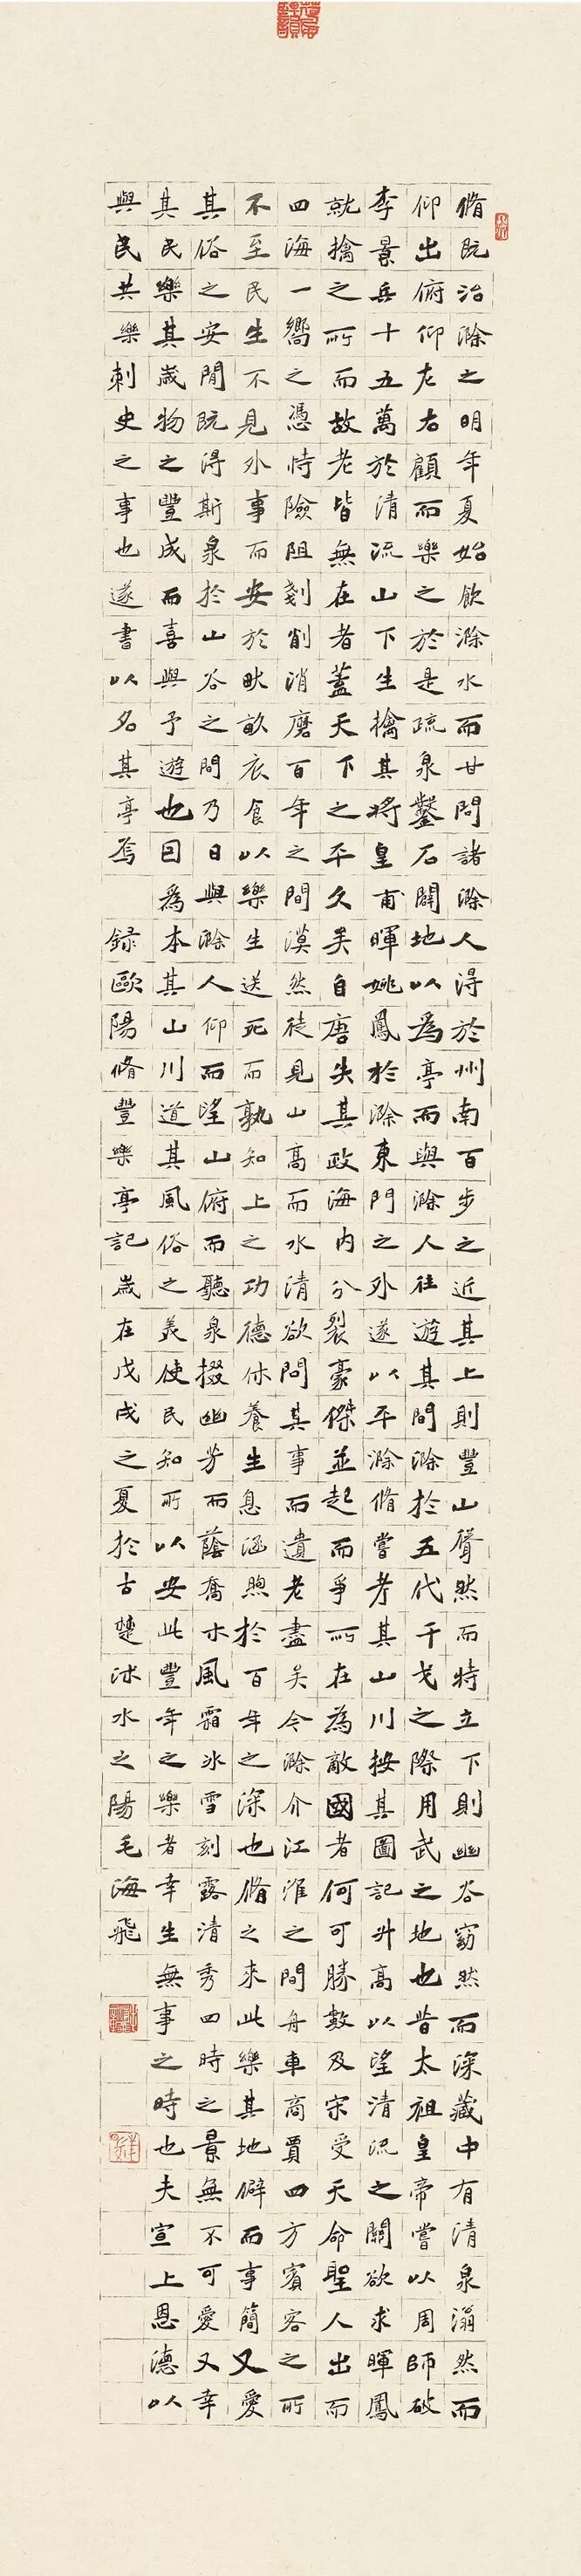 脩既治滁之明年夏始飲滁水而甘問諸滁人得於州南百步之近其上則豐山聳然而特立下則幽谷窈然而深藏中有清泉滃然而
仰出俯仰左右顧而樂之於是疏泉鑿石闢地以為亭而與滁人往遊其間滁於五代干戈之際用武之地也昔太祖皇帝嘗以周師破
李景兵十五萬於清流山下生擒其將皇甫暉姚鳳於滁東門之外遂以平滁脩嘗考其山川按其圖記升高以望清流之關欲求暉鳳
就擒之所而故老皆無在者蓋天下之平久矣自唐失其政海內分裂豪傑並起而爭所在為敵國者何可勝數及宋受天命聖人出而
四海一嚮之憑恃險阻剗削消磨百年之間漠然徒見山高而水清欲問其事而遺老盡矣今滁介江淮之間舟車商賈四方賓客之所
不至民生不見外事而安於畎畝衣食以樂生送死而孰知上之功德休養生息涵煦於百年之深也脩之來此樂其地僻而事簡又愛
其俗之安閒既得斯泉於山谷之間乃日與滁人仰而望山俯而聽泉掇幽芳而蔭喬木風霜冰雪刻露清秀四時之景無不可愛又幸
其民樂其歲物之豐成而喜與予遊也因為本其山川道其風俗之美使民知所以安此豐年之樂者幸生無事之時也夫宣上恩德以
與民共樂刺史之事也遂書以名其亭焉 録歐陽脩豐樂亭記歲在戊戌之夏於古楚沭水之陽毛海飛